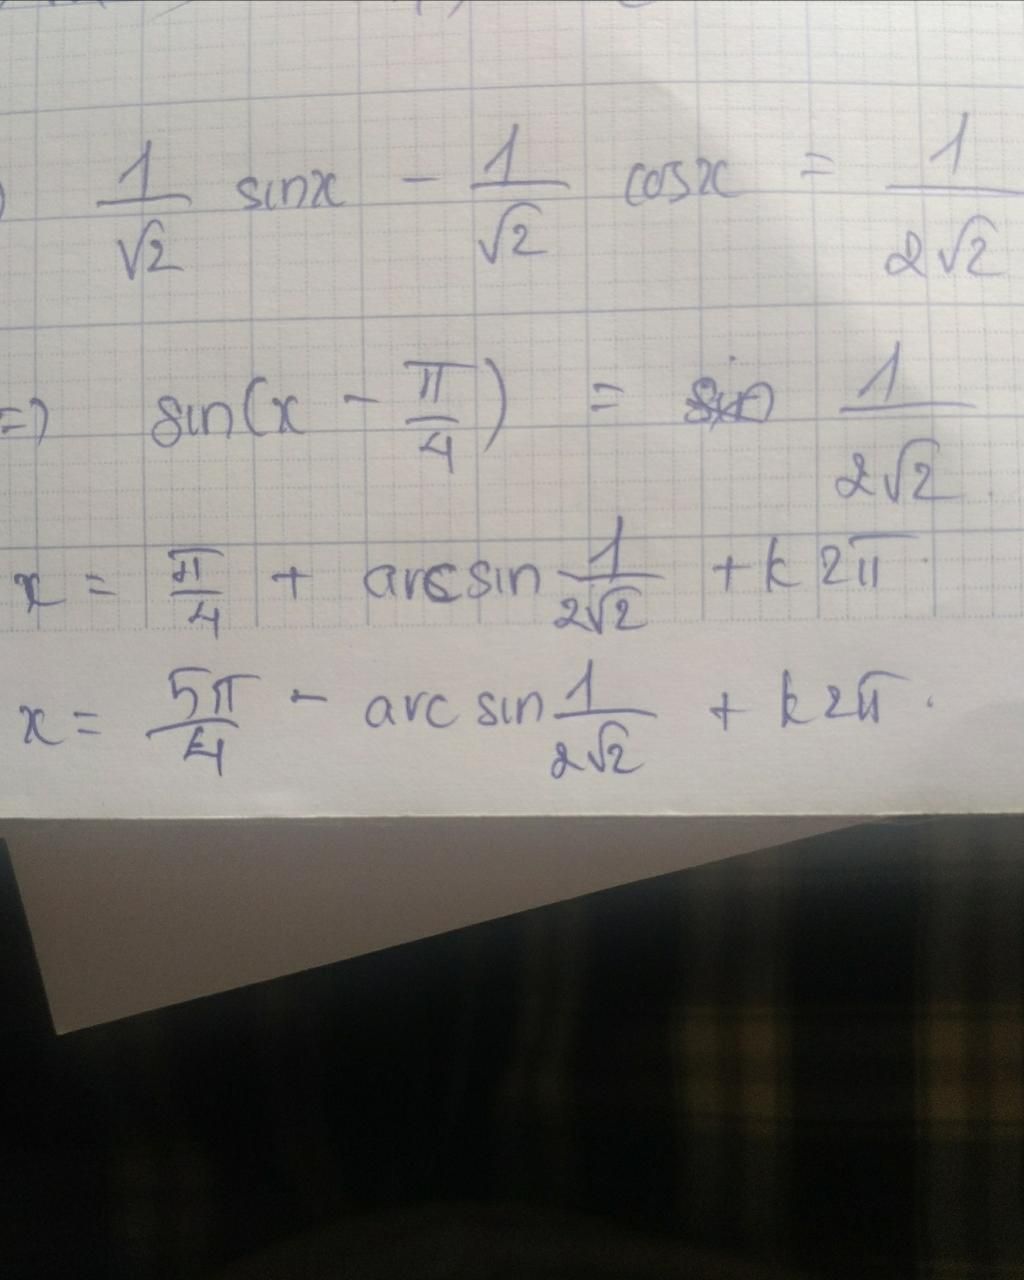 ) 1/√2 sinx - 1/√2 cosx = 1/2√2
=) sin(x - π/4) = 1/2√2
x = π/4 + arcsin 1/2√2 + k2π.
x = 5π/4 - arcsin 1/2√2 + k2π.